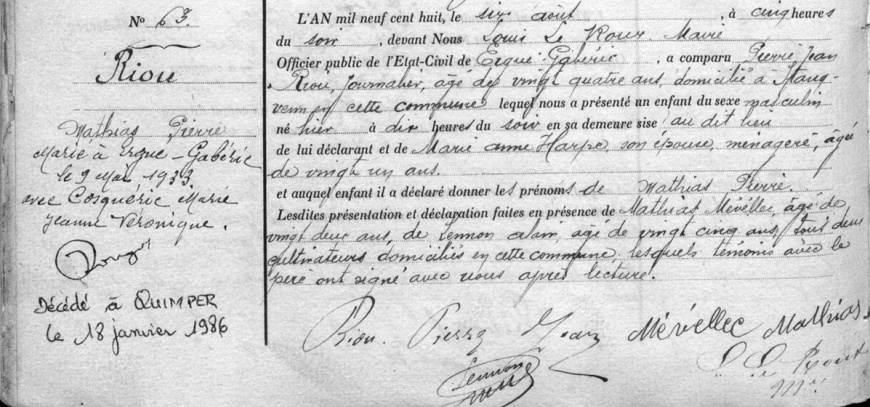 N° 63.
Riou
Mathias Pierre
Marié à Ergué-Gabéric
le 9 Mai 1933
avec Cosquéric Marie
Jeanne Véronique.
Décédé à QUIMPER
le 18 janvier 1986
L'AN mil neuf cent huit, le six août, à cinq heures
du soir, devant Nous Louis Le Roux Maire
Officier public de l'Etat-Civil de Ergué-Gabéric, a comparu Pierre Jean
Riou, Journalier, âgé de vingt quatre ans, domicilié à
en cette commune lequel nous a présenté un enfant du sexe masculin
né hier à dix heures du soir en sa demeure sise au dit lieu
de lui déclarant et de Marie anne Harpe, son épouse, ménagère, âgée
de vingt un ans.
et auquel enfant il a déclaré donner les prénoms de Mathias Pierre.
Lesdites présentation et déclaration faites en présence de Mathias Mévellec, âgé de
vingt deux ans, de alain, âgé de vingt cinq ans, tous deux
cultivateurs domiciliés en cette commune, lesquels témoins avec le
père ont signé avec nous après lecture.
Riou Pierre Jean Mévellec Mathias